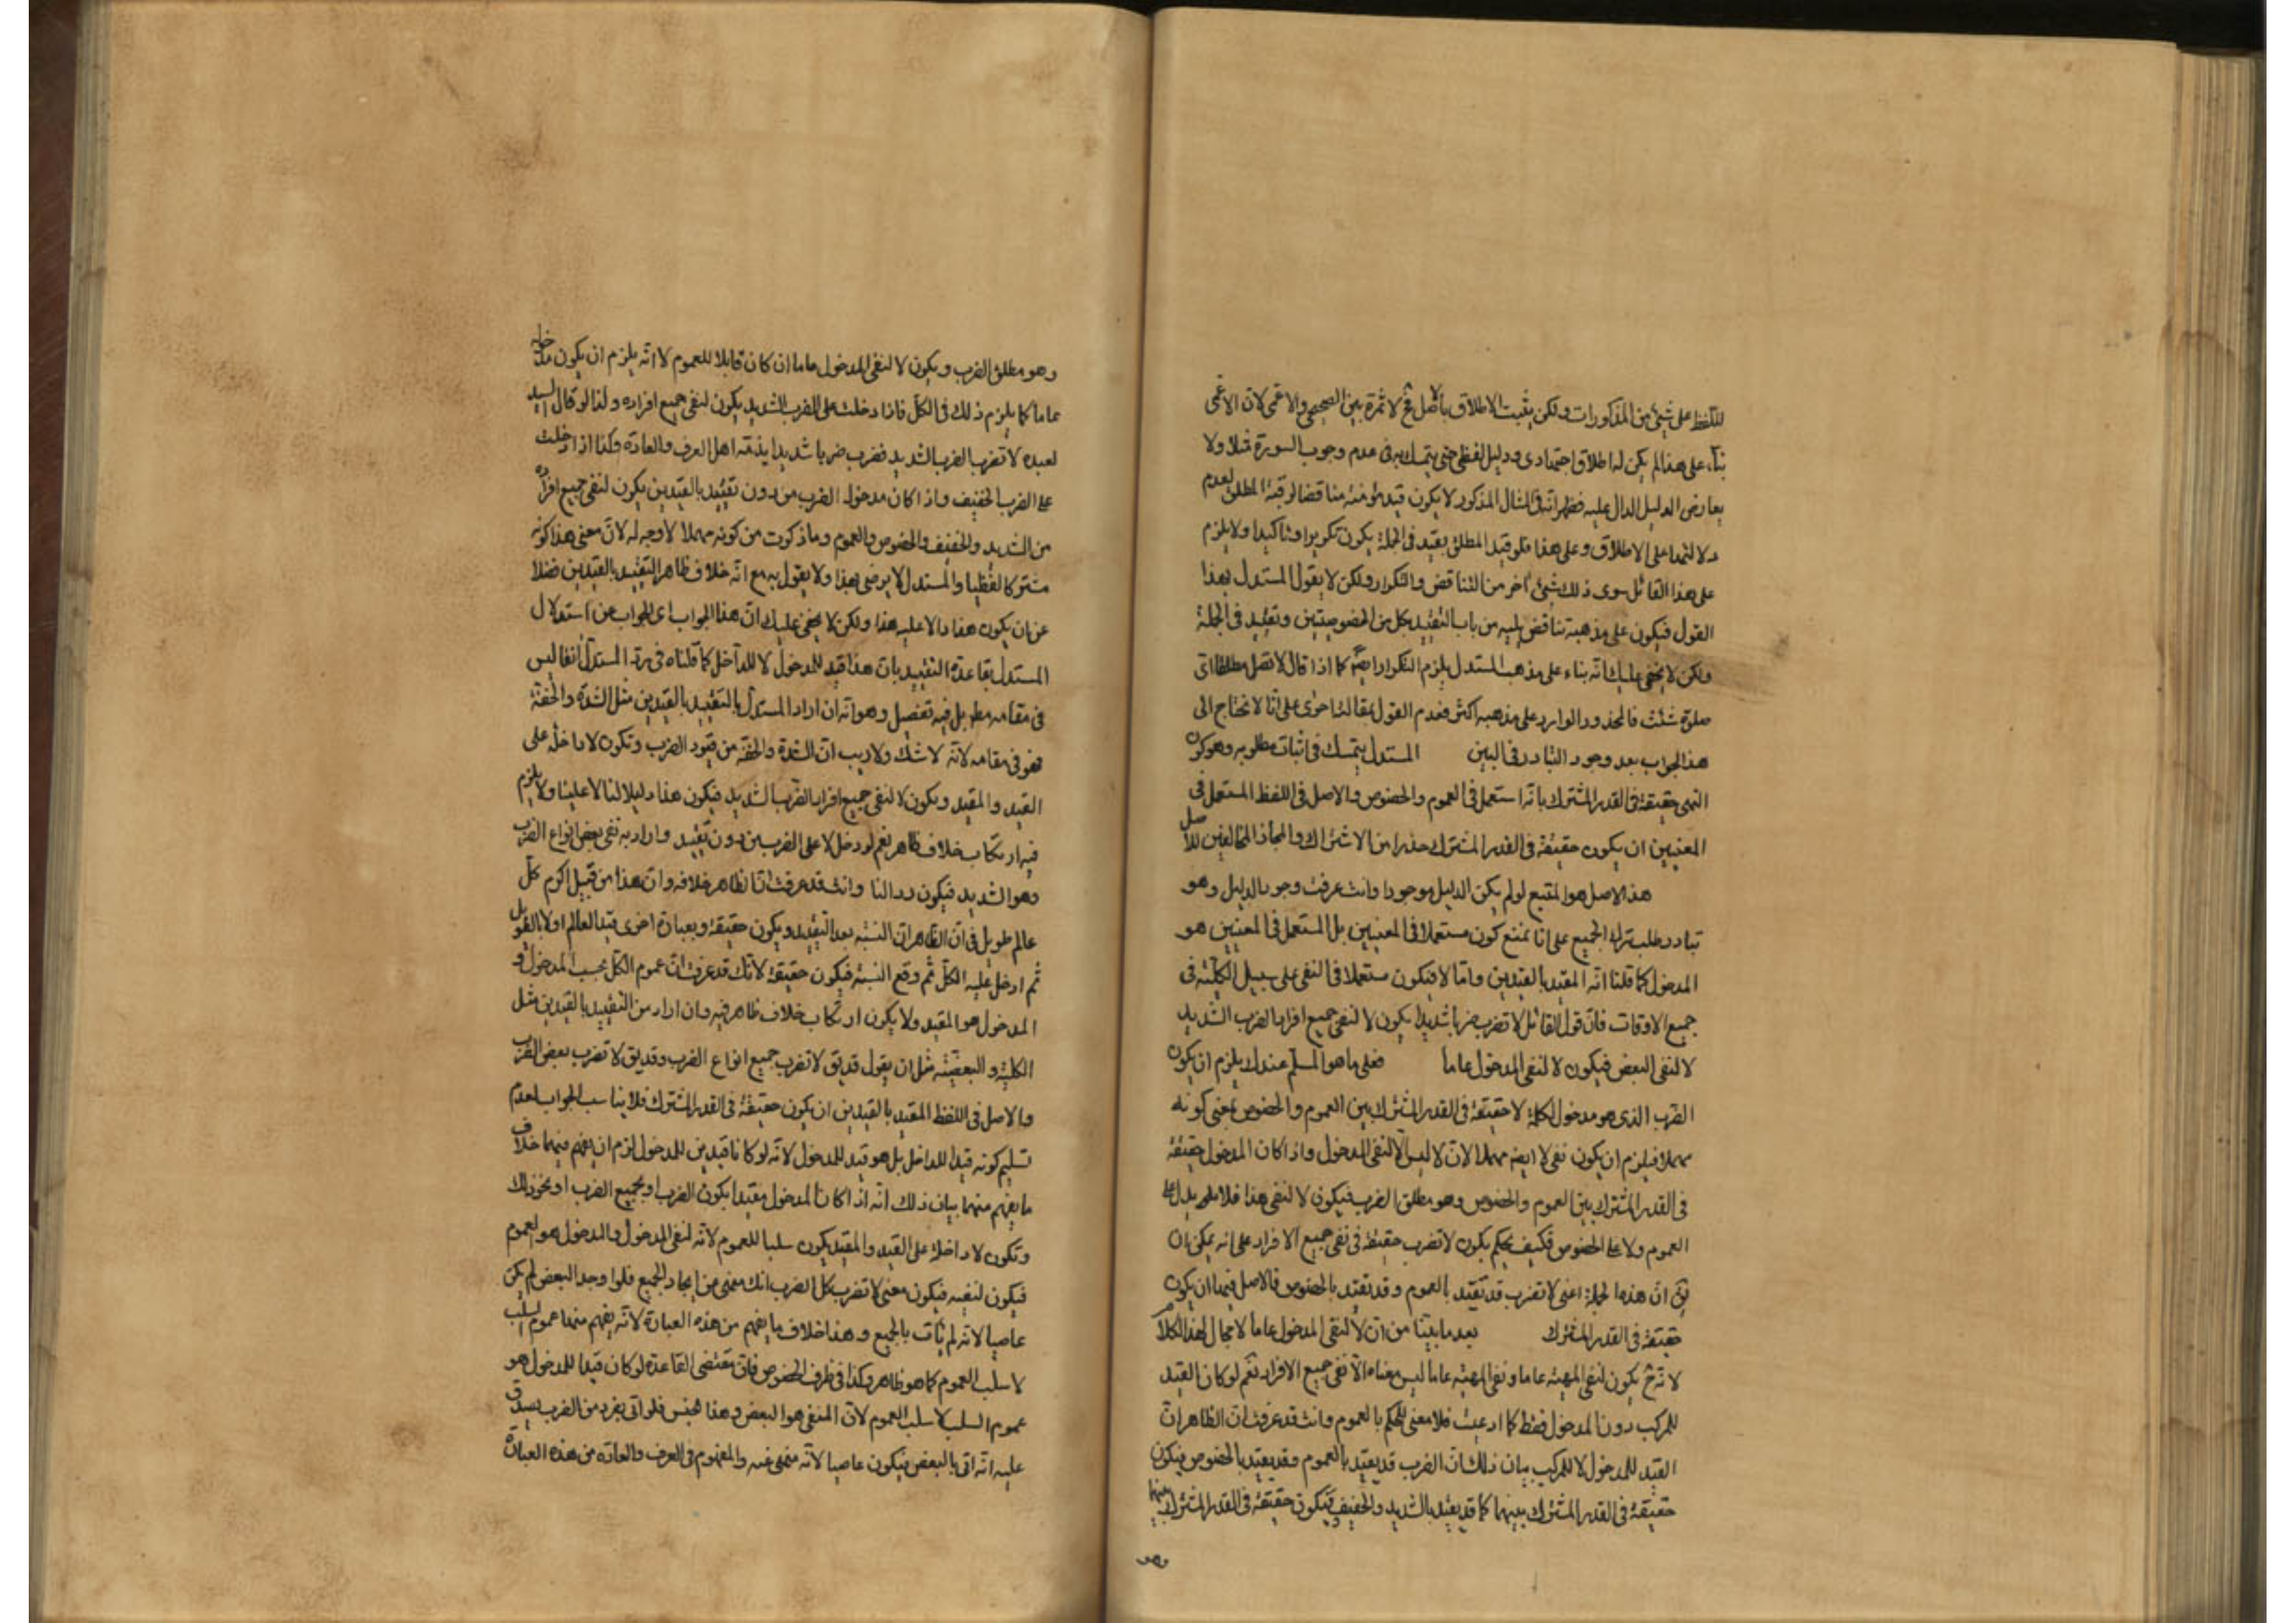 للّفظ على شيئ من المذكورات ولكن يثبت الاطلاق بالاصل فح لا ثمرة بين الصحيحى والاعمى لان الاعمى
بناء على هذا لم يكن له اطلاق اجتهادى ودليل لفظى حتى يتمسك به فى عدم وجوب السورة مثلا ولا
يعارض الدليل الدال عليه فظهر انّه فى المثال المذكور لا يكون قيد مؤمنة مناقضا لرقبة المطلق لعدم
دلالتها على الاطلاق وعلى هذا فلو قيد المطلق بقيد فى الجملة يكون تكريرا وتاكيدا ولا يلزم
على هذا القائل سوى ذلك شيئ آخر من التناقض والتكرار ولكن لا يقول المستدل بهذا
القول فيكون على مذهبه تناقض عليه من باب التقييد بكل من الخصوصيتين وتقييد فى الجملة
ولكن لا يخفى عليك انّه بناء على مذهب المستدل يلزم التكرار ايضا كما اذا قال لا تصل مطلقا اى
صلوة شئت فالمحذور الوارد على مذهبه اكثر فعدم القول بمقالته احرى على انّا لا نحتاج الى
هذ الجواب بعد وجود التبادر فى البين المستدل يتمسك فى اثبات مطلوبه وهو كون
النهى حقيقة فى القدر المشترك بانّه استعمل فى العموم والخصوص والاصل فى اللفظ المستعمل فى
المعنيين ان يكون حقيقة فى القدر المشترك حذرا من الاشتراك والمجاز المخالفين للاصل
هذ الاصل هو المتبع لو لم يكن الدليل موجودا وانت عرفت وجود الدليل وهو
تبادر طلب ترك الجميع على انا نمنع كونه مستعملا فى المعنيين بل المستعمل فى المعنيين هو
المدخول كما قلنا انّه المقيد بالقيدين وامّا لا فيكون مستعملا فى النفى على سبيل الكلّيّة فى
جميع الاوقات فانّ قول القائل لا تضرب ضربا شديدا يكون لا لنفى جميع افراد الضرب الشديد
لا لنفى البعض فيكون لا لنفى المدخول عاما فعلى ما هو المسلّم عندك يلزم ان يكون
الضرب الذى هو مدخول لكلمة لا حقيقة فى القدر المشترك بين العموم والخصوص بمعنى كونه
مهملا فيلزم ان يكون نفى لا ايضا مهملا لانّ لا ليس الا لنفى المدخول واذا كان المدخول حقيقة
فى القدر المشترك بين العموم والخصوص وهو مطلق الضرب فيكون لا لنفى هذا فلا يدل على
العموم ولا على الخصوص فكيف يحكم بكون لا تضرب حقيقة فى نفى جميع الافراد على انه يمكن ان
يق انّ هذه الجملة اعنى لا تضرب قد تقيّد بالعموم وقد تقيّد بالخصوص فالاصل فيها ان يكون
حقيقة فى القدر المشترك بعد ما بيّنّا من انّ لا لنفى المدخول عاما لا مجال لهذا الكلام
لانّه ح يكون لنفى المهيّة عاما ونفى المهيّة عاما ليس معناه الّا نفى جميع الافراد نعم لو كان القيد
للمركب دون المدخول فقط كما ادعيت فلا معنى للحكم بالعموم وانت قد عرفت انّ الظاهر انّ
القيد للمدخول لا للمركب بيان ذلك انّ الضرب قد يقيّد بالعموم وقد يقيّد بالخصوص فيكون
حقيقة فى القدر المشترك بينهما كما قد يقيّد بالشديد والخفيف فيكون حقيقة فى القدر المشترك بينهما
وهو
وهو مطلق الضرب ويكون لا لنفى المدخول عاما ان كان قابلا للعموم لا انّه يلزم ان يكون مدخوله
عاما كما يلزم ذلك فى الكلّ فاذا دخلت على الضرب الشديد يكون لنفى جميع افراده ولذا لو قال السيد
لعبده لا تضرب الضرب الشديد فضرب ضربا شديدا يذمّه اهل العرف والعادة وكذا اذا دخلت
على الضرب الخفيف واذا كان مدخوله الضرب من دون تقييد بالقيدين يكون لنفى جميع افراده
من الشديد والخفيف والخصوص والعموم وما ذكرت من كونه مهملا لا وجه له لانّ معنى هذا كونه
مشتركا لفظيا والمستدل لا يرضى بهذا ولا يقول به مع انّه خلاف ظاهر التقييد بالقيدين فضلا
عن ان يكون هذا دالا عليه هذا ولكن لا يخفى عليك انّ هذا الجواب اى الجواب عن استدلال
المستدل بقاعدة التقييد بان هذا قيد للمدخول لا للداخل كما قلناه فى ردّ المستدل آنفا ليس
فى مقامه مط بل فيه تفصيل وهو انّه ان اراد المستدل بالتقييد بالقيدين مثل الشدة والخفة
فهو فى مقامه لانّه لا شك ولا ريب انّ الشدة والخفة من قيود الضرب وتكون لا داخلة على
القيد والمقيد ويكون لا لنفى جميع افراد الضرب الشديد فيكون هذا دليلا لنا لا علينا ولا يلزم
فيه ارتكاب خلاف ظاهر نعم لو دخل لا على الضرب من دون تقييد واراد به نفى بعض انواع الضرب
وهو الشديد فيكون ردا لنا وانت قد عرفت انّ الظاهر خلافه وانّ هذا من قبيل اكرم كلّ
عالم طويل فى انّ الظاهر انّ النسبة بعد التقييد ويكون حقيقة وبعبارة اخرى قيد العالم اولا بالطويل
ثم ادخل عليه الكلّ ثم وقع النسبة فيكون حقيقة لانّك قد عرفت انّ عموم الكلّ بحسب المدخول و
المدخول هو المقيد ولا يكون ارتكاب خلاف ظاهر فيه وان اراد من التقييد بالقيدين مثل
الكلية والبعضيّة مثل ان يقول قد يق لا تضرب جميع انواع الضرب وقد يق لا تضرب بعض الضرب
والاصل فى اللفظ المقيد بالقيدين ان يكون حقيقة فى القدر المشترك فلا يناسب الجواب لعدم
تسليم كونه قيدا للداخل بل هو قيد للمدخول لانّه لو كانا قيدين للمدخول لزم ان يفهم منهما خلاف
ما يفهم منهما بيان ذلك انّه اذا كان المدخول مقيدا بكون الضرب او بجميع الضرب او نحو ذلك
وتكون لا داخلة على القيد والمقيد يكون سلبا للعموم لانّه لنفى المدخول والمدخول هو العموم
فيكون لنفيه فيكون معنى لا تضرب كل الضرب انك منهى من ايجاد الجميع فلو اوجد البعض لم يكن
عاصيا لانه لم يأت بالجميع وهذا خلاف ما يفهم من هذه العبارة لانّه يفهم منها عموم السلب
لا سلب العموم كما هو ظاهر وكذا فى طرف الخصوص فانّ مقتضى القاعدة لو كان قيدا للمدخول هو
عموم السلب لا سلب العموم لانّ المنفى هو البعض وهذا جنس فلو اتى بفرد من الضرب يصدق
عليه انّه اتى بالبعض فيكون عاصيا لانّه منهى عنه والمفهوم فى العرف والعادة من هذه العبارة